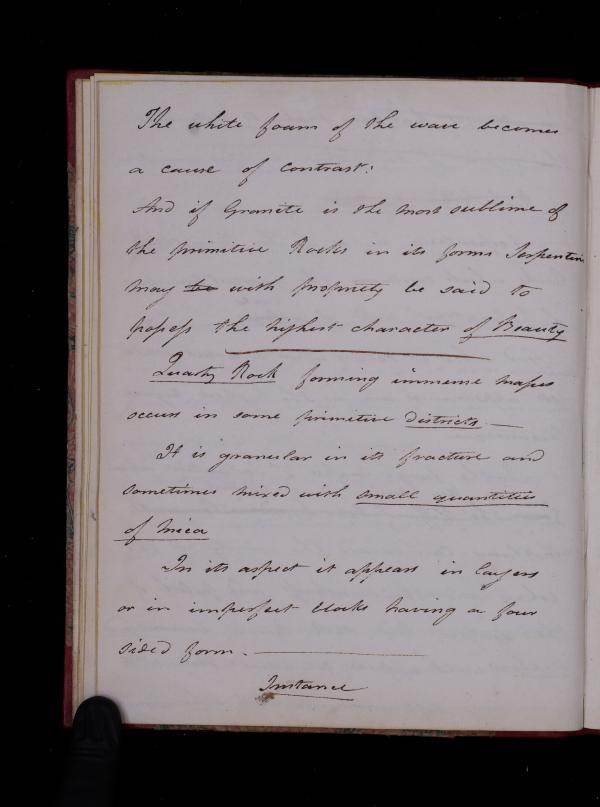 The white foam of the wave becomes
a cause of contrast:
And if Granite is the most sublime of
the primitive Rocks in its forms Serpentine
may be with propriety be said to
possess the highest character of Beauty
Quartz Rock forming immense masses
occurs in some primitive districts —
It is granular in its fracture and
sometimes mixed with small quantities
of Mica
In its aspect it appears in layers
or in imperfect blocks having a four
sided form. —
Instance